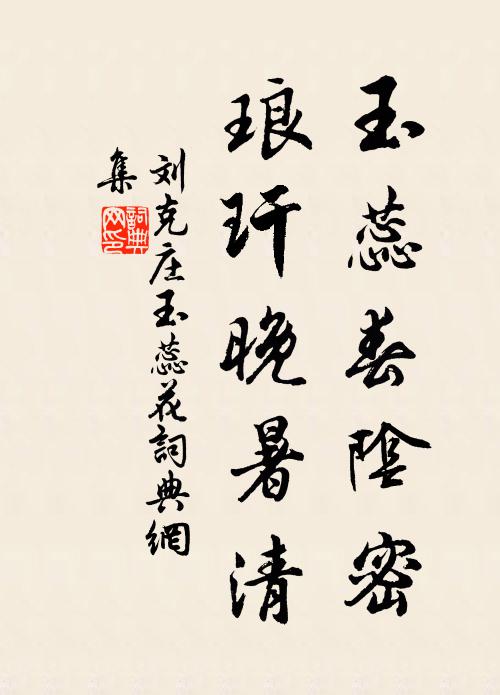 玉蕊春陰密
琅玕晚暑清
刘克庄玉蕊花詞典網
集
詞典网印